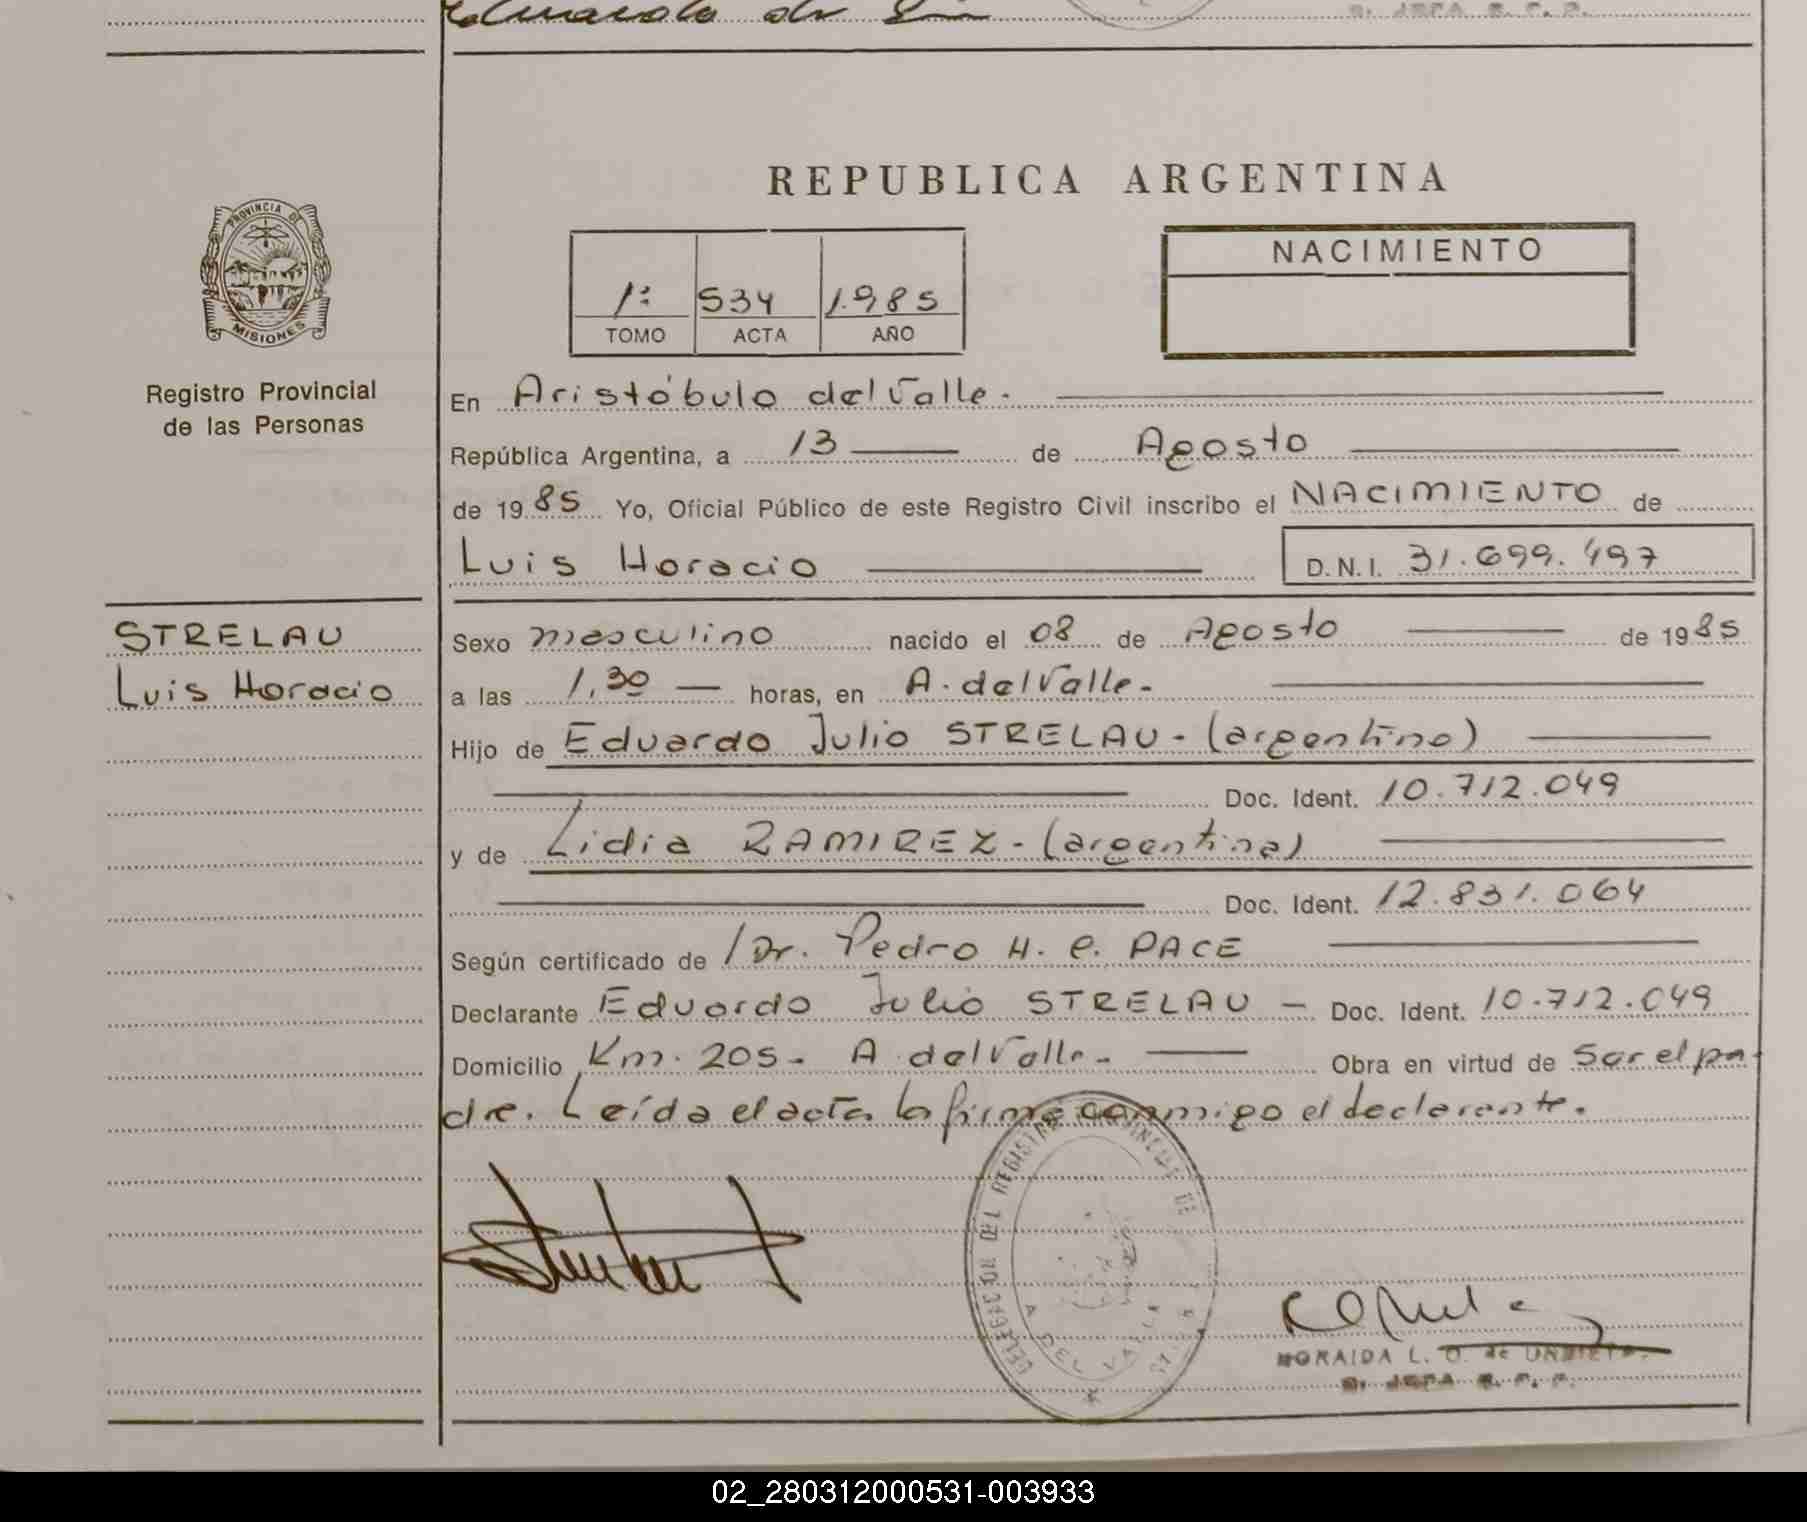 PROVINCIA DE
MISIONES
Registro Provincial
de las Personas
STRELAU
Luis Horacio
REPUBLICA ARGENTINA
1º 534 1.985
TOMO ACTA AÑO
NACIMIENTO
En Aristóbulo del Valle.
República Argentina, a 13 de Agosto
de 1985 Yo, Oficial Público de este Registro Civil inscribo el NACIMIENTO de
Luis Horacio D.N.I. 31.699.497
Sexo masculino nacido el 08 de Agosto de 1985
a las 1,30 horas, en A. del Valle.
Hijo de Eduardo Julio STRELAU - (argentino)
Doc. Ident. 10.712.049
y de Lidia RAMIREZ - (argentina)
Doc. Ident. 12.831.064
Según certificado de /Dr. Pedro H. C. PACE
Declarante Eduardo Julio STRELAU - Doc. Ident. 10.712.049
Domicilio Km. 205 - A. del Valle - Obra en virtud de Ser el pa-
dre. Leída el acta la firma conmigo el declarante.
DELEGACION DEL REGISTRO PROVINCIAL DE
A. DEL VALLE
MORAIDA L. O. de
JEFA R. P. P.
02_280312000531-003933